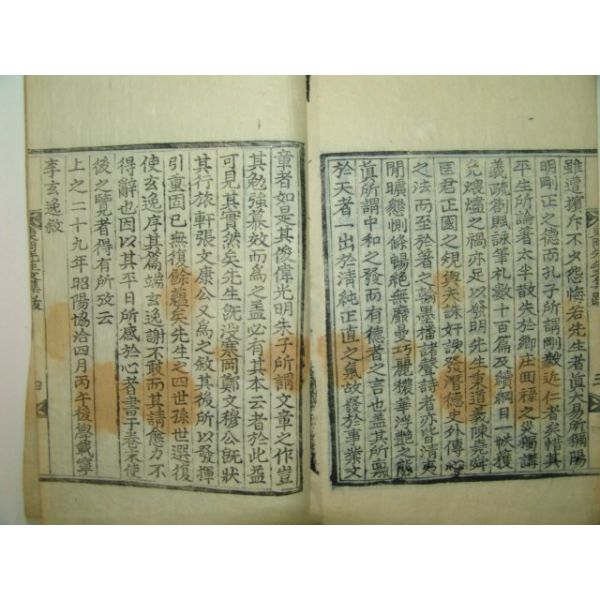 雖遭擯斥不少怨悔若先生者眞大易所稱陽
明剛正之德而孔子所謂剛毅近仁者矣惜其
平生所論著太半散失於鄕庄回祿之災獨講
義疏劄賦詠筆札數十百篇及續綱目一帙獲
免煨燼之禍亦足以發明先生秉道義陳堯舜
匡君正國之䂓與夫誅奸諛發潛德史外傳心
之法而至於著之翰墨播諸聲詩者亦皆淸夷
閒曠懇惻條暢絶無靡曼巧麗穠華浮艶之態
眞所謂中和之發而有德者之言也盖其所禀
於天者一出於淸純正直之氣故發於事業文
章者如是其俊偉光明朱子所謂文章之作豈
其勉强慕效而爲之盖必有其本云者於此益
可見其實然矣先生旣沒寒岡鄭文穆公旣狀
其行旅軒張文康公又爲之敘其後所以發揮
引重固已無復餘蘊矣先生之四世孫世選復
使玄逸序其篇端玄逸謝不敢而其請愈力不
得辭也因以其平日所感於心者書于卷末使
後之覽者得有所攷云
上之二十九年昭陽協洽四月丙午後學載寧
李玄逸敘
四
三